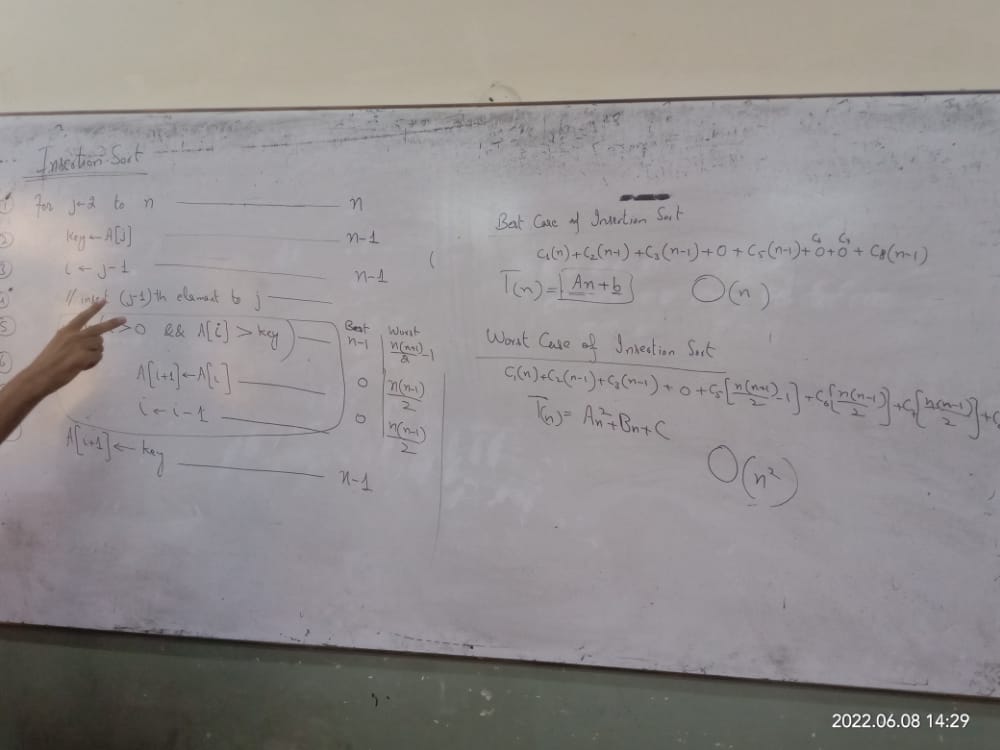 Insertion Sort
① For j←2 to n —— n
② key←A[j] —— n-1
③ i ← j-1 —— n-1
④ // insert (j-1)th element to j ——
⑤ >0 && A[i] > key) —— Best n-1 Worst n(n+1)/2 -1
⑥ A[i+1]←A[i] —— 0 n(n-1)/2
i ← i-1 —— 0 n(n-1)/2
A[i+1] ← key —— n-1
Best Case of Insertion Sort
C₁(n)+C₂(n-1)+C₃(n-1)+0+C₅(n-1)+0+0+C₈(n-1)
T(n)=[An+b] O(n)
Worst Case of Insertion Sort
C₁(n)+C₂(n-1)+C₃(n-1)+0+C₅[n(n+1)/2 -1]+C₆[n(n-1)/2]+C₇[n(n-1)/2]+C
T(n)= An²+Bn+C
O(n²)
2022.06.08 14:29